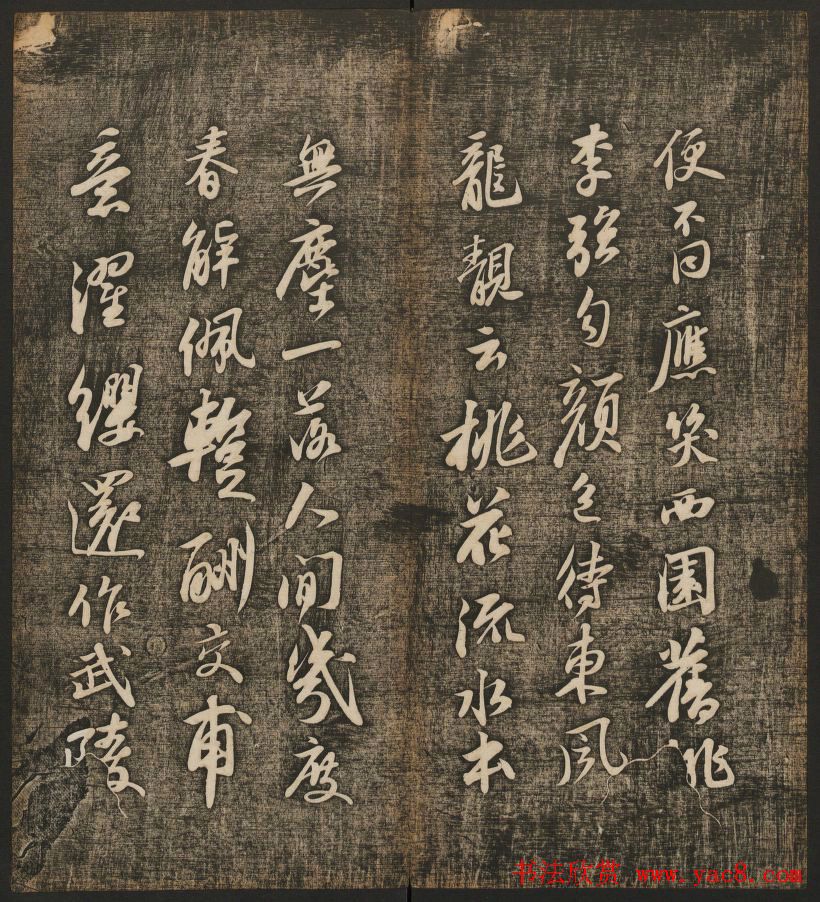 便不同應笑西園舊桃
李強匀顏色待東風
龍靚云桃花流水本
無塵一落人間幾度
春解佩蹔酬交甫
意濯纓還作武陵
书法欣赏 www.yac8.com